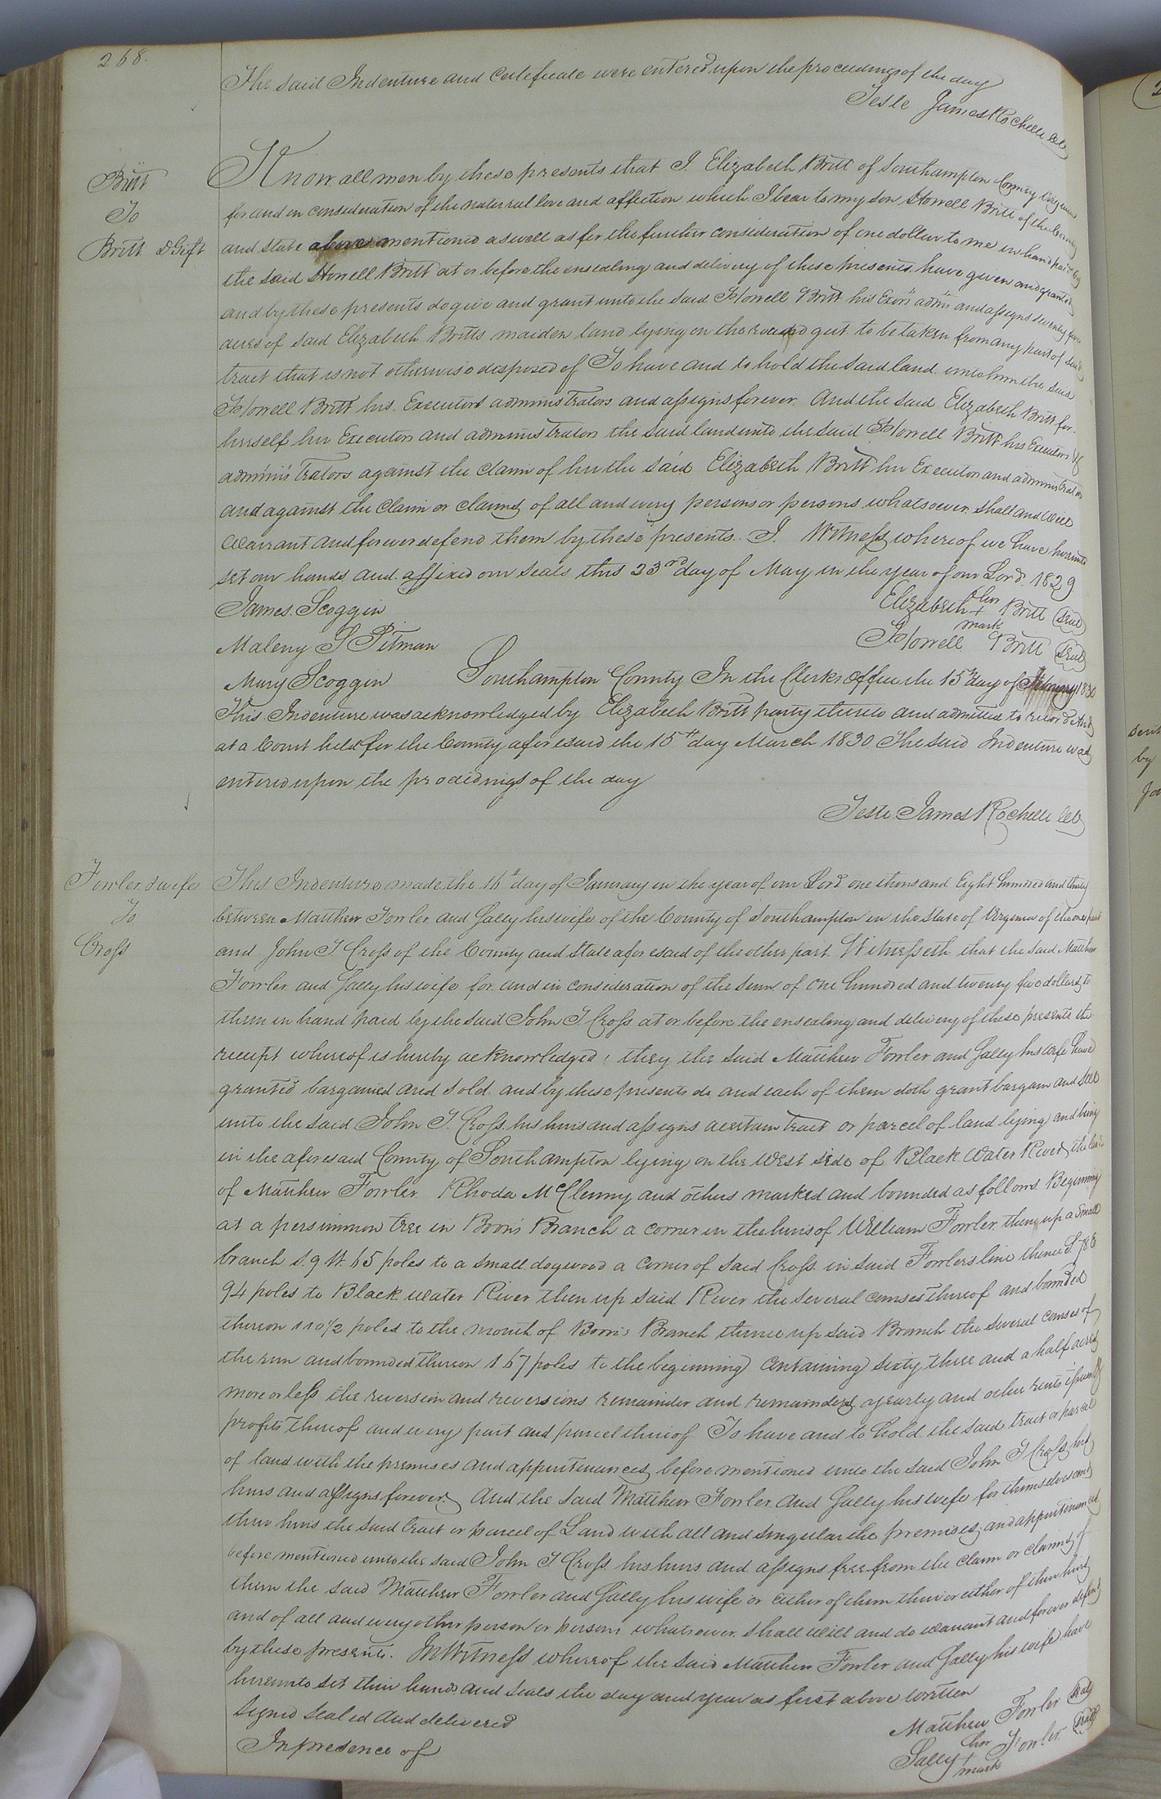 268.
The said Indenture and Certificate were entered upon the proceedings of the day
Teste James Rochelle Clk
Britt
To
Britt D Gift
Know all men by these presents that I Elizabeth Britt of Southampton County
for and in consideration of the natural love and affection which I bear to my son Howell Britt of the County
and state above mentioned as well as for the further consideration of one dollar to me in hand paid by
the said Howell Britt at or before the ensealing and delivery of these presents have given and granted
and by these presents do give and grant unto the said Howell Britt his Exors admrs and assigns seventy five
acres of said Elizabeth Britts maiden land lying on the gut to be taken from any part of said
tract that is not otherwise desposed of To have and to hold the said land unto him the said
Howell Britt his Executors administrators and assigns forever. And the said Elizabeth Britt for
herself her Executors and administrators the said land unto the said Howell Britt his Executors &
administrators against the claim of her the said Elizabeth Britt her Executors and administrators
and against the claim or claims of all and every persons or persons whatsoever shall and will
warrant and forever defend them by these presents. I Witness whereof we have hereunto
set our hands and affixed our seals this 23rd day of May in the year of our Lord 1829
James Scoggin
Elizabeth her + mark Britt Seal
Maleny S Pitman
Howell Britt Seal
Mary Scoggin
Southampton County In the Clerks Office the 15th day of 1830
This Indenture was acknowledged by Elizabeth Britt party thereto and admitted to record And
at a Court held for the County aforesaid the 15th day March 1830 The said Indenture was
entered upon the prodedings of the day
Teste James Rochelle Clk
Fowler & wife
To
Cross
This Indenture made the 16th day of January in the year of our Lord one thousand Eight hundred and thirty
between Matthew Fowler and Sally his wife of the County of Southampton in the State of Virginia of the one part
and John T Cross of the County and State aforesaid of the other part Witnesseth that the said Matthew
Fowler and Sally his wife for and in consideration of the sum of one hundred and twenty five dollars to
them in hand paid by the said John T Cross at or before the ensealing and delivery of these presents the
receipt whereof is hereby acknowledged, they the said Matthew Fowler and Sally his wife have
granted bargained and sold and by these presents do and each of them doth grant bargain and sell
unto the said John T. Cross his heirs and assigns a certain tract or parcel of land lying and being
in the aforesaid County of Southampton lying on the West side of Black Water River the land
of Matthew Fowler Rhoda McClenny and others marked and bounded as follows Beginning
at a persimmon tree in Boon's Branch a corner in the heirs of William Fowler then up a small
branch S. 9 W. 65 poles to a small dogwood a corner of said Cross in said Fowlers line thence S. 78 E
94 poles to Black water River then up said River the several courses thereof and bounded
thereon 110 1/2 poles to the mouth of Boon's Branch thence up said Branch the several courses of
the run and bounded thereon 167 poles to the beginning containing Sixty three and a half acres
more or less the reversion and reversions remainder and remainders yearly and other rents issues &
profits thereof and every part and parcel thereof To have and to hold the said tract or parcel
of land with the premises and appurtenances before mentioned unto the said John T Cross his
heirs and assigns forever. And the said Matthew Fowler and Sally his wife for themselves and
their heirs the said tract or parcel of Land with all and singular the premises and appurtenances
before mentioned unto the said John T Cross his heirs and assigns free from the claim or claims of
them the said Matthew Fowler and Sally his wife or either of them their or either of their heirs
and of all and every other person or persons whatsoever shall will and do warrant and forever defend
by these presents. In Witness whereof the said Matthew Fowler and Sally his wife have
hereunto set their hands and seals the day and year as first above written
Signed Sealed and delivered
Matthew Fowler Seal
In presence of
Sally her + mark Fowler Seal